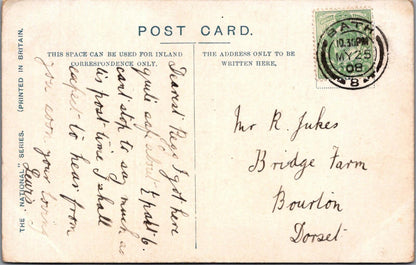 POST CARD.
THIS SPACE CAN BE USED FOR INLAND
CORRESPONDENCE ONLY.
THE ADDRESS ONLY TO BE
WRITTEN HERE.
THE "NATIONAL" SERIES. (PRINTED IN BRITAIN.
BATH
10.30PM
MY 25
08
8
Dearest Reg I got here
quite safe about ½ past 6.
cant stop to say much as
its post time I shall
expect to hear from
you
your loving
Lewis
Mr R. Jukes
Bridge Farm
Bourton
Dorset